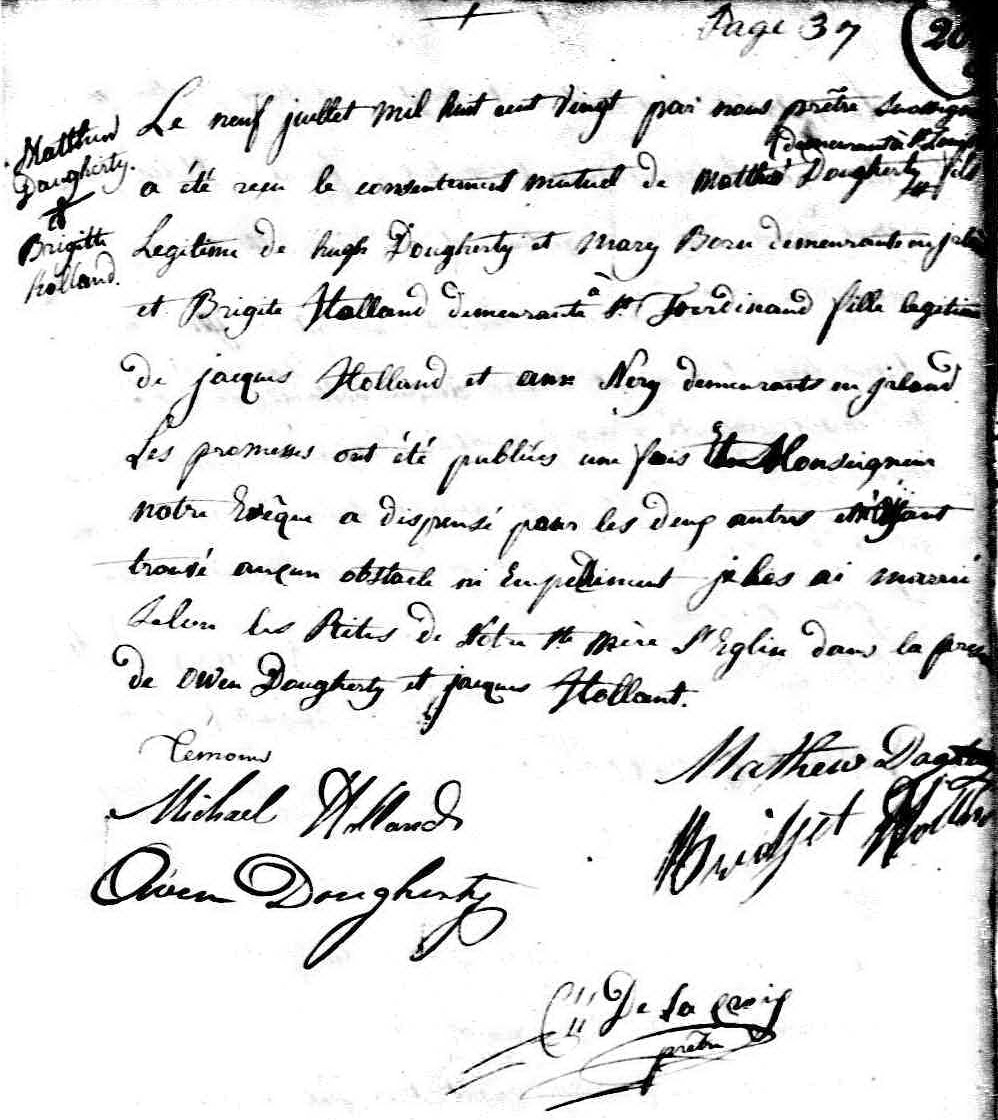 Page 37
20
Matthew
Daugherty.
et
Brigitte
holland.
Le neuf juillet mil huit cent vingt par nous prêtre
demeurant à St Louis
a été reçu le consentement mutuel de Matthé Dougherty fils
Legitime de hugh Dougherty et Mary Born demeurants en
et Brigite Holland demeurante à St. Ferdinand fille legitime
de jacques Holland et anne Nery demeurants en jrland
Les promesses ont été publiées une fois et Monseigneur
notre Evêque a dispensé pour les deux autres et
trouvé auçun obstacle ni Empediment je les ai marrié
Selon les Rites de Notre Ste mère St Eglise dans la
de Owen Dougherty et jacques Hollant.
Temoins
Michael Holland
Owen Dougherty
Mathew
Bridget
De la croix
prêtre